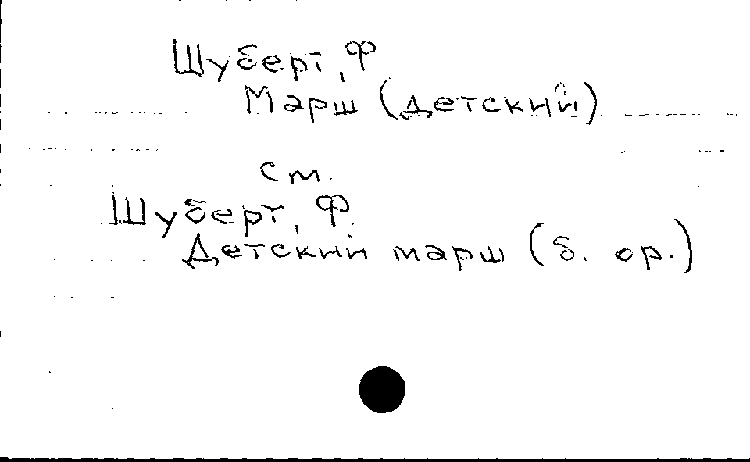 Шуберт, Ф
Марш (детский)
см.
Шуберт, Ф.
Детский марш (б. ор.)